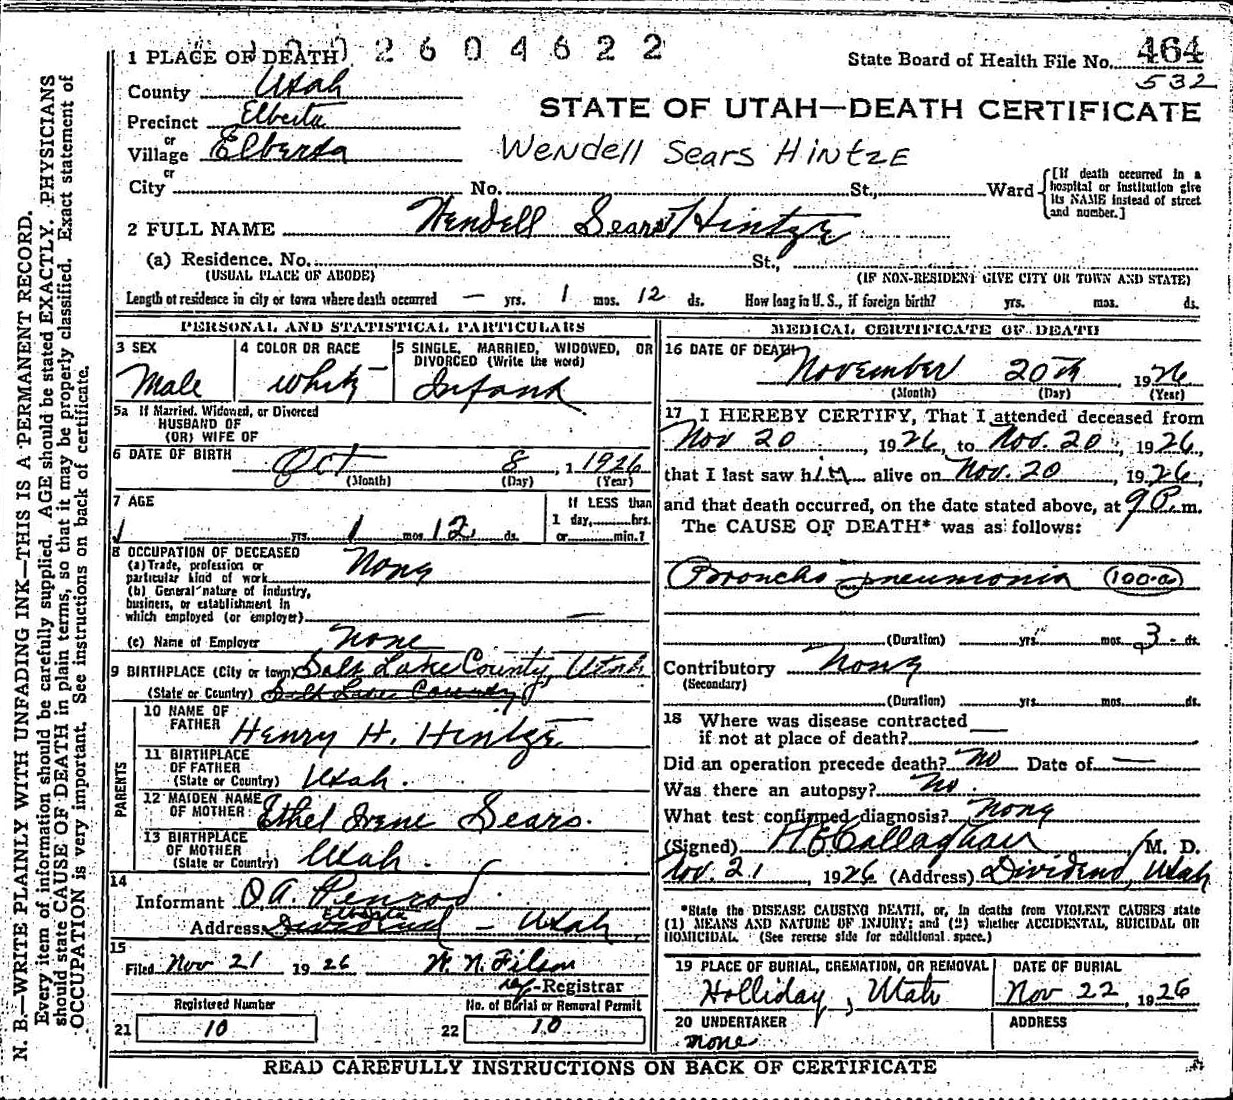 1 PLACE OF DEATH
2604622
State Board of Health File No. 464
532
County Utah
STATE OF UTAH—DEATH CERTIFICATE
Precinct Elberta
or
Village Elberta
Wendell Sears Hintze
or
City No. St., Ward
[If death occurred in a
hospital or institution give
its NAME instead of street
and number.]
2 FULL NAME Wendell Sears Hintze
(a) Residence. No. St.,
(USUAL PLACE OF ABODE) (IF NON-RESIDENT GIVE CITY OR TOWN AND STATE)
Length of residence in city or town where death occurred — yrs. 1 mos. 12 ds. How long in U. S., if foreign birth? yrs. mos. ds.
PERSONAL AND STATISTICAL PARTICULARS
3 SEX
Male
4 COLOR OR RACE
White
5 SINGLE, MARRIED, WIDOWED, OR
DIVORCED (Write the word)
Infant
5a If Married, Widowed, or Divorced
HUSBAND OF
(OR) WIFE OF
6 DATE OF BIRTH Oct 8, 1 1926
(Month) (Day) (Year)
7 AGE
yrs. 1 mos. 12 ds.
If LESS than
1 day, hrs.
or min.?
8 OCCUPATION OF DECEASED
(a) Trade, profession or
particular kind of work None
(b) General nature of industry,
business, or establishment in
which employed (or employer) —
(c) Name of Employer None
9 BIRTHPLACE (City or town) Salt Lake County, Utah
(State or Country) Salt Lake County
PARENTS
10 NAME OF
FATHER Henry H. Hintze
11 BIRTHPLACE
OF FATHER
(State or Country) Utah.
12 MAIDEN NAME
OF MOTHER Ethel Irene Sears.
13 BIRTHPLACE
OF MOTHER
(State or Country) Utah.
14
Informant O. A. Penrod.
Elberta
Address Dividend — Utah
15
Filed Nov 21 1926 W. N. Filson
Registrar
Registered Number
21 10
No. of Burial or Removal Permit
22 10
MEDICAL CERTIFICATE OF DEATH
16 DATE OF DEATH
November 20th, 1926
(Month) (Day) (Year)
17 I HEREBY CERTIFY, That I attended deceased from
Nov 20, 1926, to Nov. 20, 1926,
that I last saw him alive on Nov. 20, 1926,
and that death occurred, on the date stated above, at 9 P. m.
The CAUSE OF DEATH* was as follows:
Broncho-pneumonia (100-a)
(Duration) yrs. mos. 3 ds.
Contributory None
(Secondary)
(Duration) yrs. mos. ds.
18 Where was disease contracted
if not at place of death? —
Did an operation precede death? No Date of —
Was there an autopsy? No.
What test confirmed diagnosis? None
(Signed) H E Callaghan M. D.
Nov. 21, 1926 (Address) Dividend, Utah
*State the DISEASE CAUSING DEATH, or, in deaths from VIOLENT CAUSES state
(1) MEANS AND NATURE OF INJURY; and (2) whether ACCIDENTAL, SUICIDAL OR
HOMICIDAL. (See reverse side for additional space.)
19 PLACE OF BURIAL, CREMATION, OR REMOVAL
Holliday, Utah
DATE OF BURIAL
Nov 22, 1926
20 UNDERTAKER
None
ADDRESS
READ CAREFULLY INSTRUCTIONS ON BACK OF CERTIFICATE
N. B.—WRITE PLAINLY WITH UNFADING INK—THIS IS A PERMANENT RECORD.
Every item of information should be carefully supplied. AGE should be stated EXACTLY. PHYSICIANS
should state CAUSE OF DEATH in plain terms, so that it may be properly classified. Exact statement of
OCCUPATION is very important. See instructions on back of certificate.